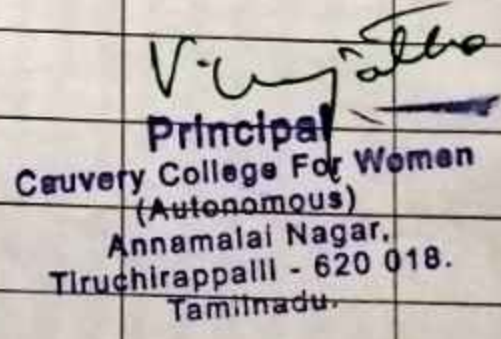 Principal
Cauvery College For Women
(Autonomous)
Annamalai Nagar,
Tiruchirappalli - 620 018.
Tamilnadu.